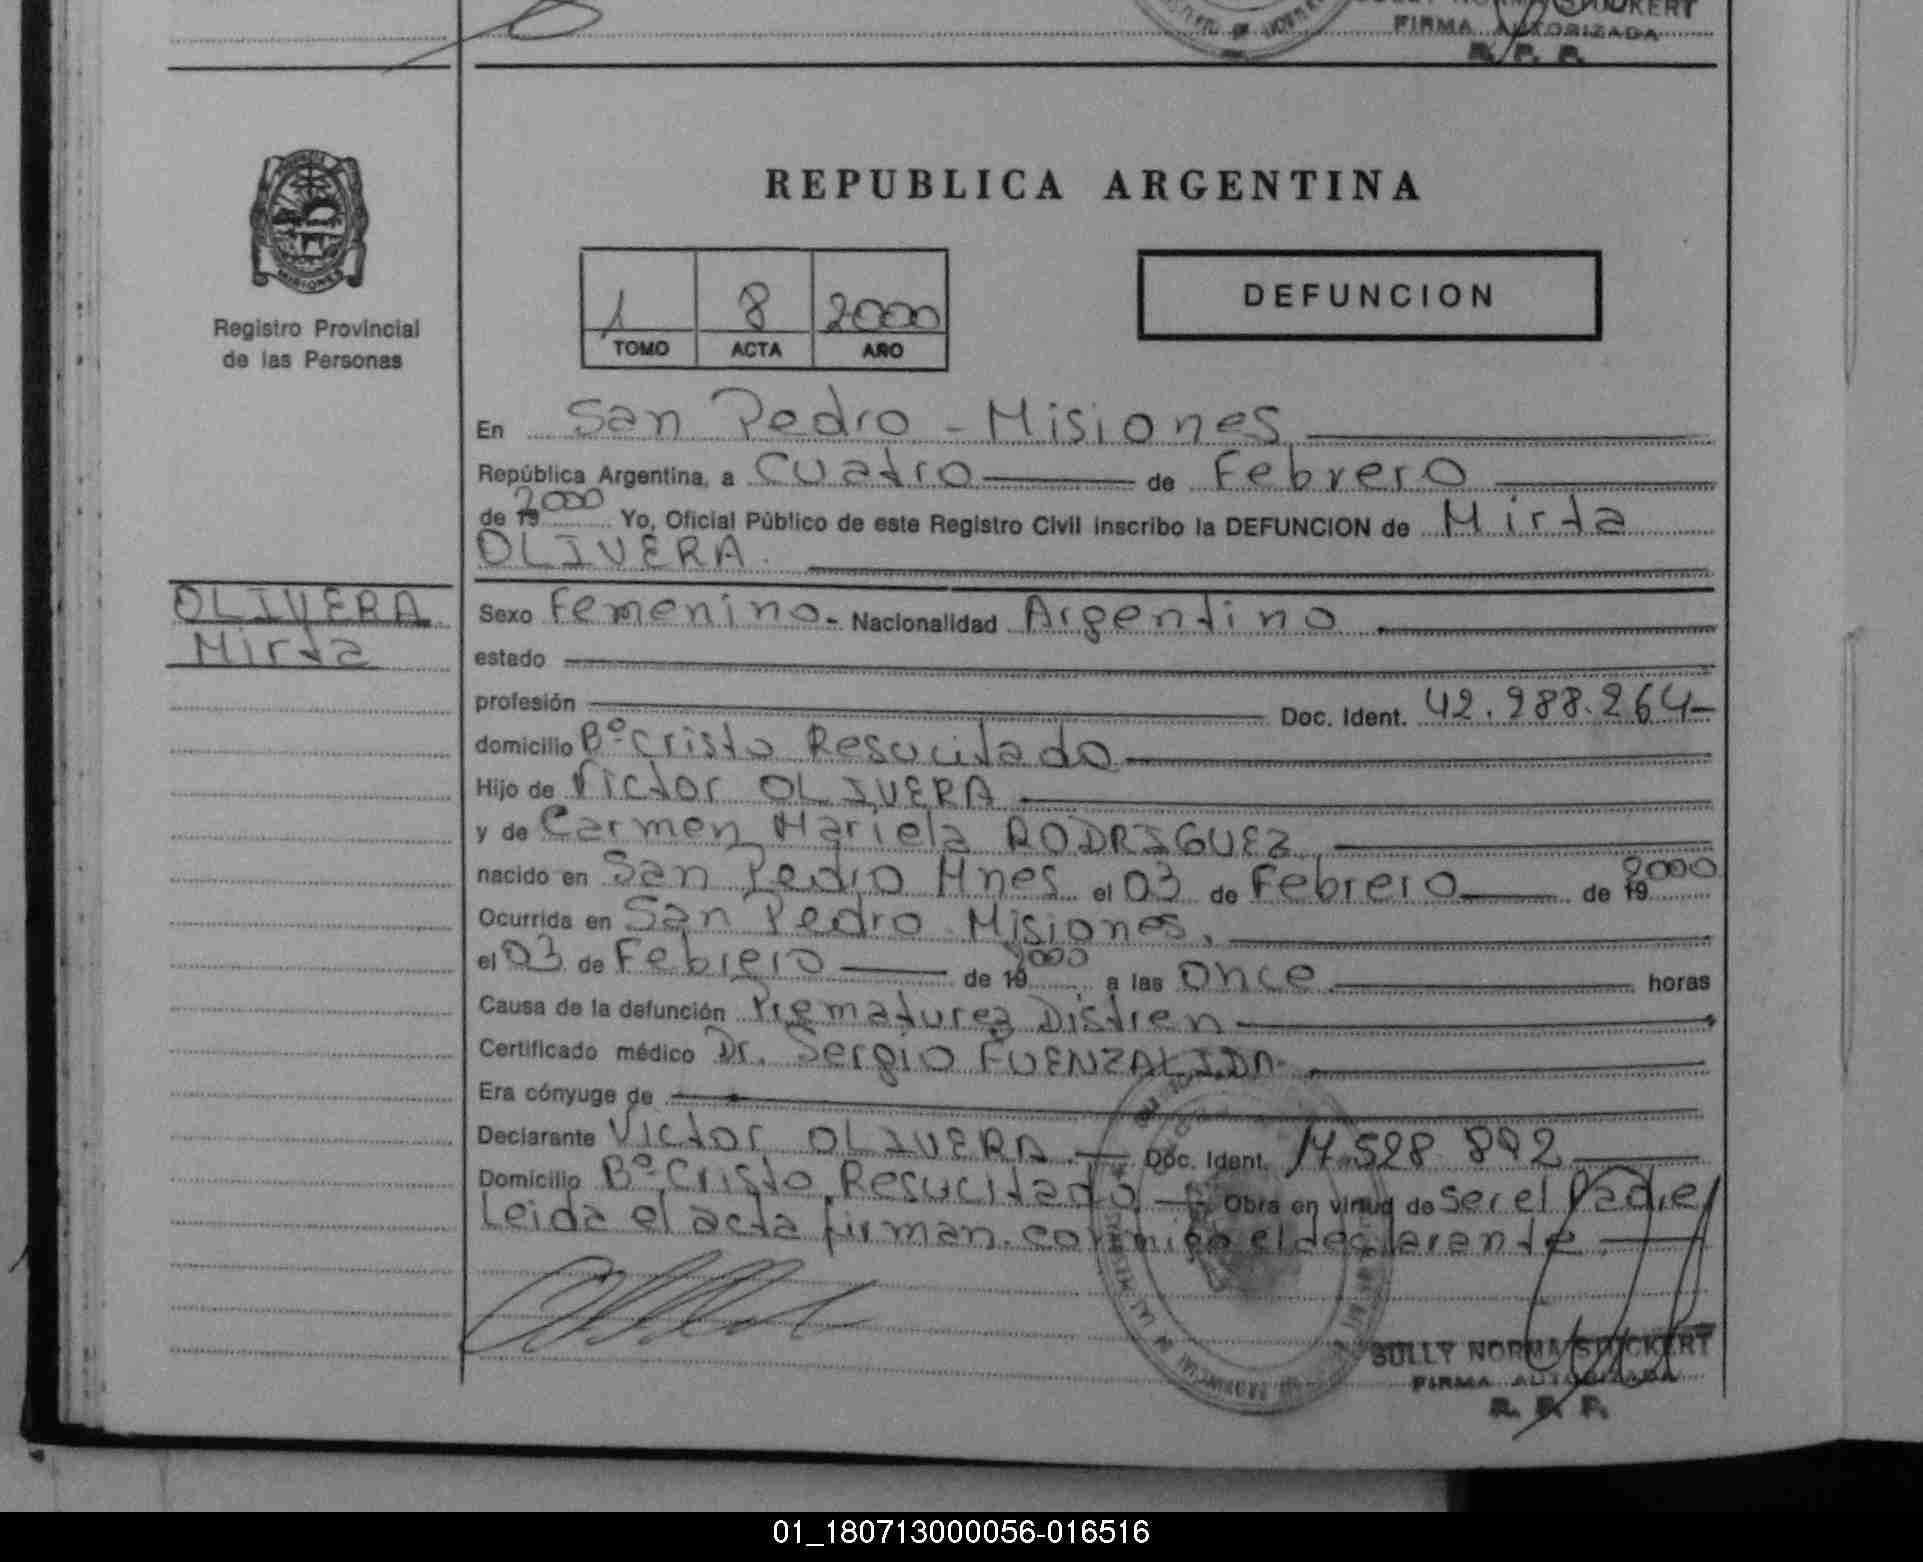 SULLY NORMA STOCKERT
FIRMA AUTORIZADA
R. P. P.
REPUBLICA ARGENTINA
MISIONES
Registro Provincial
de las Personas
1 8 2000
TOMO ACTA AÑO
DEFUNCION
En San Pedro - Misiones
República Argentina, a cuatro de Febrero
de 19 2000 Yo, Oficial Público de este Registro Civil inscribo la DEFUNCION de Mirta
OLIVERA.
OLIVERA
Mirta
Sexo Femenino - Nacionalidad Argentino
estado
profesión Doc. Ident. 42.288.264-
domicilio Bº Cristo Resucitado
Hijo de Victor OLIVERA
y de Carmen Mariela RODRIGUEZ
nacido en San Pedro Mnes el 03 de Febrero de 19 2000
Ocurrida en San Pedro Misiones,
el 03 de Febrero de 19 2000 a las once horas
Causa de la defunción Prematurez Distren
Certificado médico Dr. Sergio FUENZALIDA
Era cónyuge de
Declarante Victor OLIVERA Doc. Ident. 17.528 892
Domicilio Bº Cristo Resucitado Obra en virtud de ser el Padre
Leida el acta firman conmigo el declarante
SULLY NORMA STOCKERT
FIRMA AUTORIZADA
R. P. P.
01_180713000056-016516